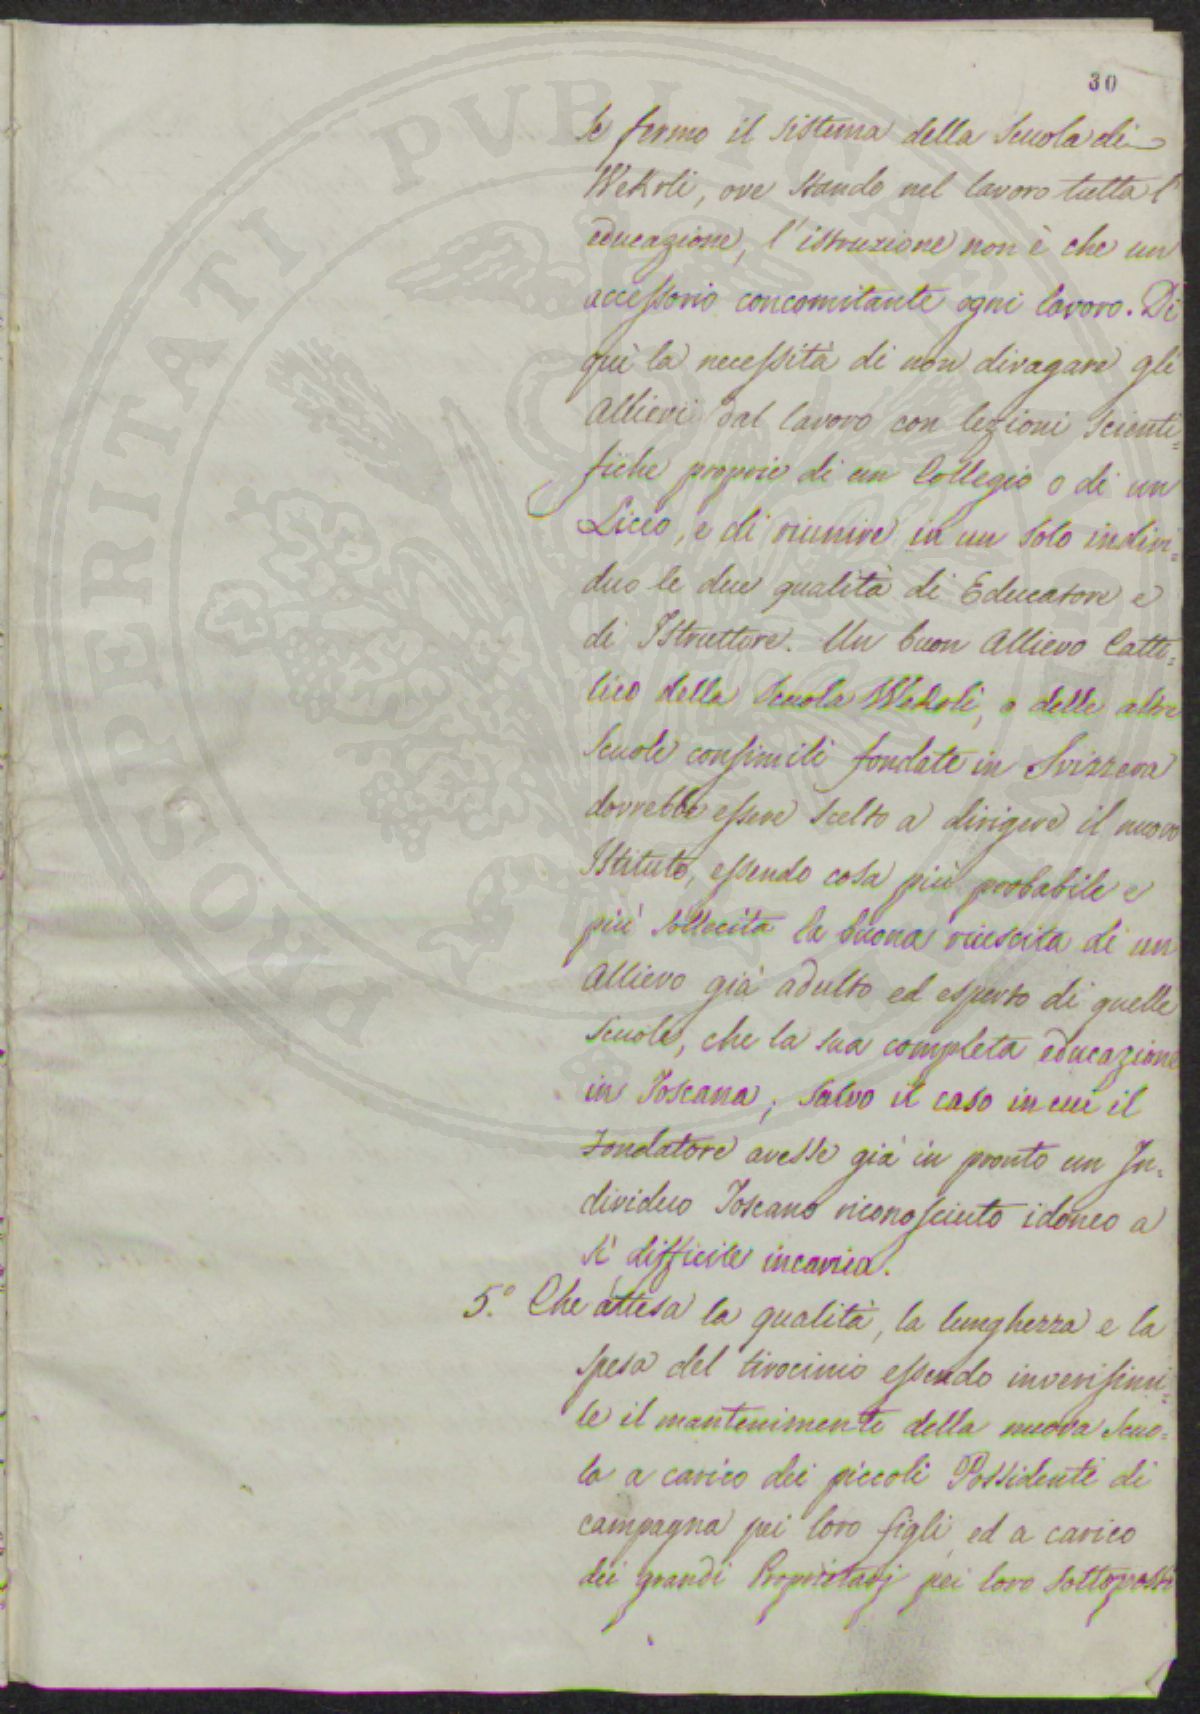 30
se fermo il sistema della Scuola di
Wekrli, ove stando nel lavoro tutta l'
educazione, l'istruzione non è che un
accessorio concomitante ogni lavoro. Di
quì la necessità di non divagare gli
Allievi dal lavoro con lezioni scienti=
fiche proprie di un Collegio o di un
Liceo, e di riunire in un solo indivi=
duo le due qualità di Educatore e
di Istruttore. Un buon Allievo Catto=
lico della Scuola Wekrli, o delle altre
Scuole consimili fondate in Svizzera
dovrebbe essere scelto a dirigere il nuovo
Istituto, essendo cosa più probabile e
più sollecita la buona riuscita di un
Allievo già adulto ed esperto di quelle
Scuole, che la sua completa educazione
in Toscana; salvo il caso in cui il
Fondatore avesse già in pronto un In=
dividuo Toscano riconosciuto idoneo a
sì difficile incarico.
5.° Che attesa la qualità, la lunghezza e la
spesa del tirocinio essendo inverisimi=
le il mantenimento della nuova Scuo=
la a carico dei piccoli Possidenti di
campagna pei loro figli, ed a carico
dei grandi Proprietarj pei loro sottoposti
PROSPERITATI PVBLICAE AVGENDAE